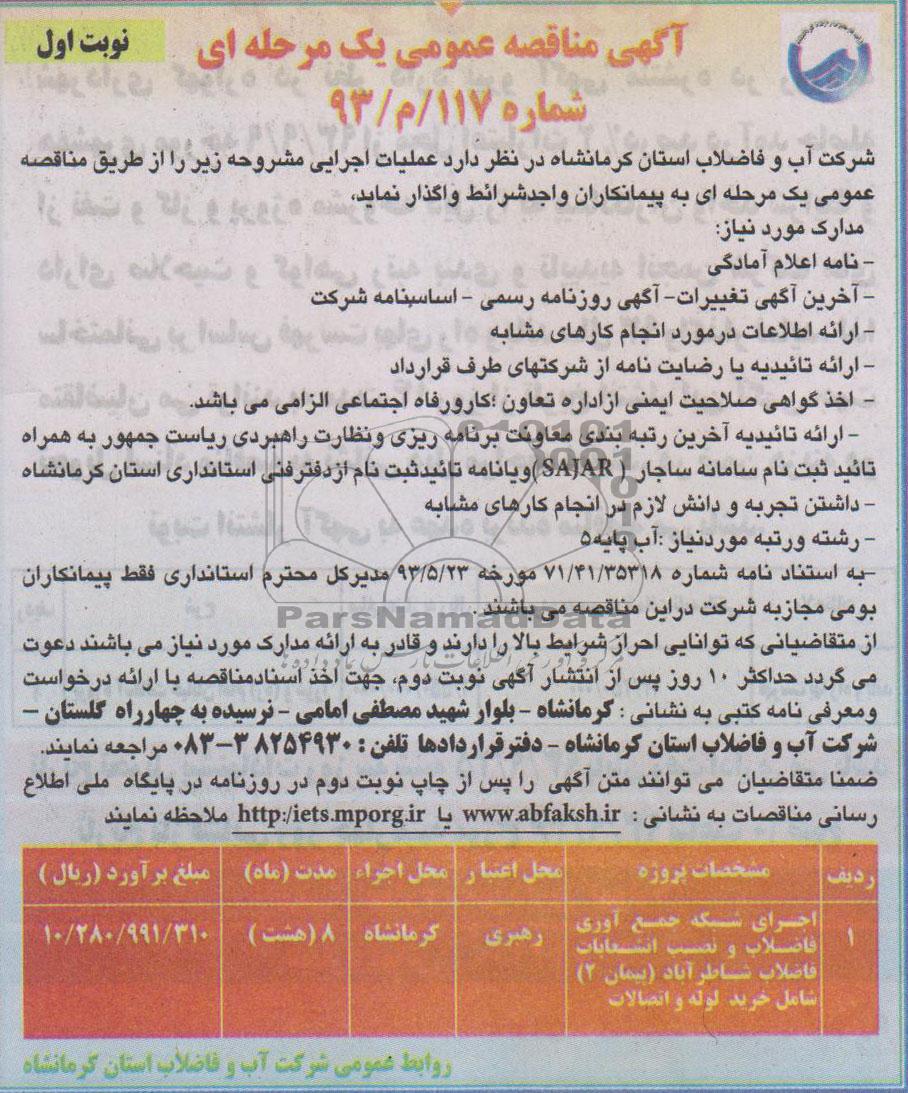 نوبت اول
آگهی مناقصه عمومی یک مرحله ای
شماره ۱۱۷/م/۹۳
شرکت آب و فاضلاب استان کرمانشاه در نظر دارد عملیات اجرایی مشروحه زیر را از طریق مناقصه
عمومی یک مرحله ای به پیمانکاران واجدشرائط واگذار نماید،
مدارک مورد نیاز:
- نامه اعلام آمادگی
- آخرین آگهی تغییرات- آگهی روزنامه رسمی - اساسنامه شرکت
- ارائه اطلاعات درمورد انجام کارهای مشابه
- ارائه تائیدیه یا رضایت نامه از شرکتهای طرف قرارداد
- اخذ گواهی صلاحیت ایمنی ازاداره تعاون ؛کارورفاه اجتماعی الزامی می باشد.
- ارائه تائیدیه آخرین رتبه بندی معاونت برنامه ریزی ونظارت راهبردی ریاست جمهور به همراه
تائید ثبت نام سامانه ساجار ( SAJAR )ویانامه تائیدثبت نام ازدفترفنی استانداری استان کرمانشاه
- داشتن تجربه و دانش لازم در انجام کارهای مشابه
- رشته ورتبه موردنیاز :آب پایه۵
-به استناد نامه شماره ۷۱/۴۱/۳۵۳۱۸ مورخه ۹۳/۵/۲۳ مدیرکل محترم استانداری فقط پیمانکاران
بومی مجازبه شرکت دراین مناقصه می باشند .
ParsNamadData
از متقاضیانی که توانایی احراز شرایط بالا را دارند و قادر به ارائه مدارک مورد نیاز می باشند دعوت
می گردد حداکثر ۱۰ روز پس از انتشار آگهی نوبت دوم، جهت اخذ اسنادمناقصه با ارائه درخواست
ومعرفی نامه کتبی به نشانی : کرمانشاه - بلوار شهید مصطفی امامی - نرسیده به چهارراه گلستان -
شرکت آب و فاضلاب استان کرمانشاه - دفترقراردادها تلفن : ۳۸۲۵۴۹۳۰-۰۸۳ مراجعه نمایند.
ضمنا متقاضیان می توانند متن آگهی را پس از چاپ نوبت دوم در روزنامه در پایگاه ملی اطلاع
رسانی مناقصات به نشانی : www.abfaksh.ir یا http:/iets.mporg.ir ملاحظه نمایند
ردیف مشخصات پروژه محل اعتبار محل اجراء مدت (ماه) مبلغ برآورد (ریال)
۱ اجرای شبکه جمع آوری فاضلاب و نصب انشعابات فاضلاب شاطرآباد (پیمان ۲) شامل خرید لوله و اتصالات رهبری کرمانشاه ۸ (هشت) ۱۰/۲۸۰/۹۹۱/۳۱۰
روابط عمومی شرکت آب و فاضلاب استان کرمانشاه